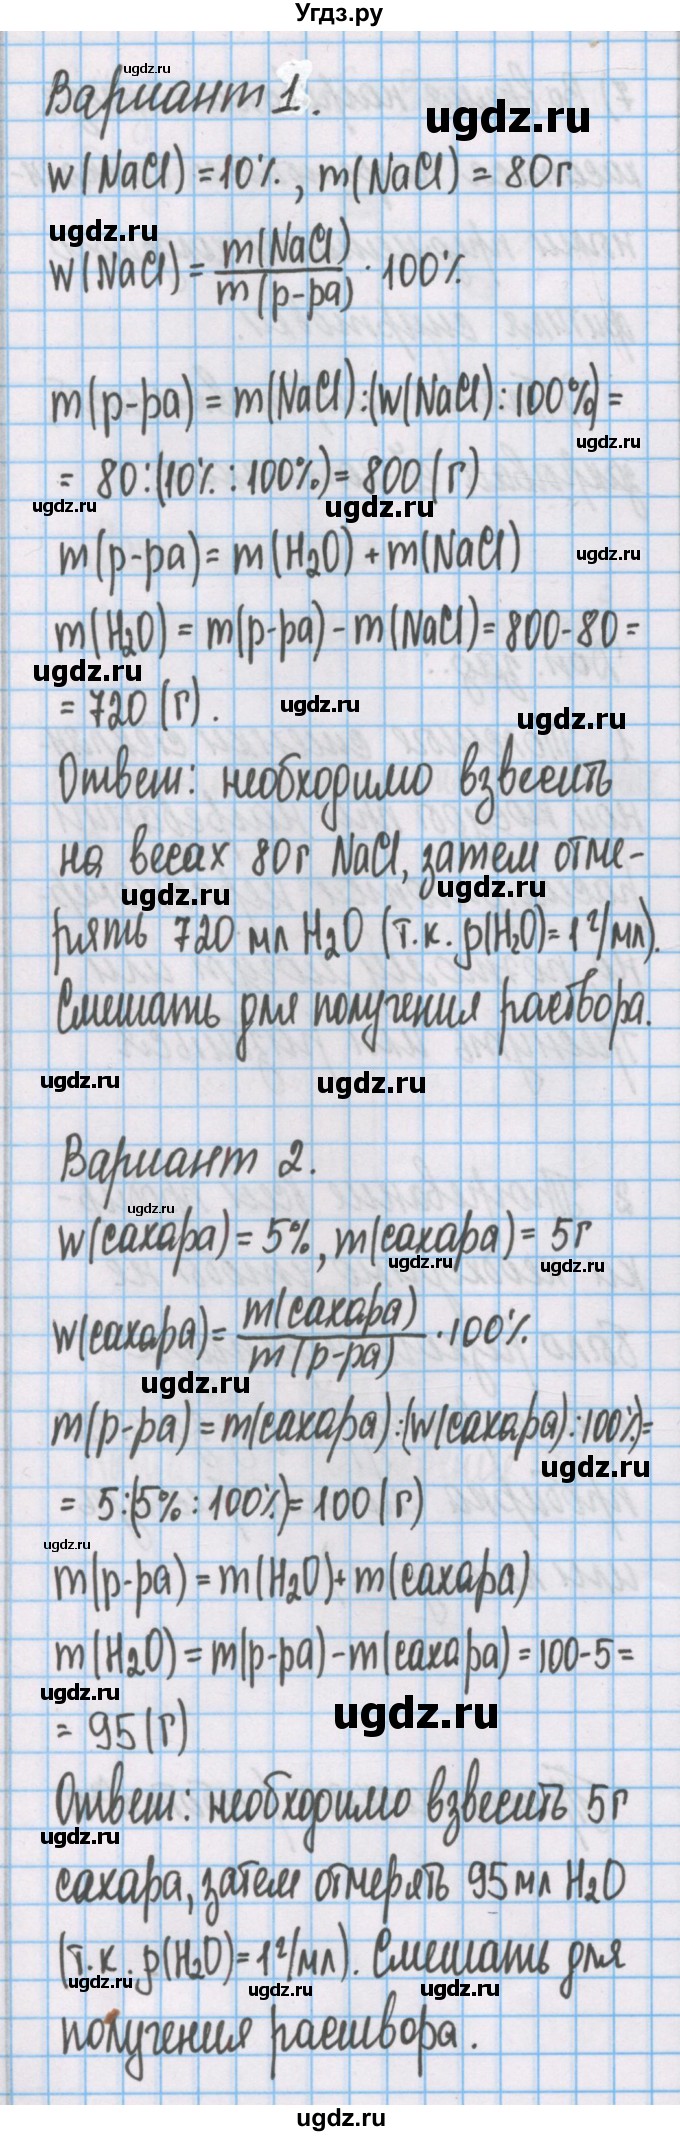 Угдз.ру
ugdz.ru
Вариант 1.
ugdz.ru
w(NaCl) = 10%, m(NaCl) = 80г
ugdz.ru
w(NaCl) = m(NaCl) / m(р-ра) · 100%
m(р-ра) = m(NaCl):(w(NaCl):100%) =
ugdz.ru
= 80:(10% : 100%) = 800 (г)
ugdz.ru ugdz.ru
m(р-ра) = m(H₂O) + m(NaCl)
ugdz.ru
m(H₂O) = m(р-ра) - m(NaCl) = 800-80 =
ugdz.ru
= 720 (г).
ugdz.ru ugdz.ru
Ответ: необходимо взвесить
на весах 80г NaCl, затем отме-
ugdz.ru ugdz.ru
рять 720 мл H₂O (т.к. ρ(H₂O)=1 г/мл).
Смешать для получения раствора.
ugdz.ru ugdz.ru
Вариант 2.
ugdz.ru
w(сахара) = 5%, m(сахара) = 5г
ugdz.ru ugdz.ru
w(сахара) = m(сахара) / m(р-ра) · 100%
ugdz.ru
m(р-ра) = m(сахара):(w(сахара):100%)=
ugdz.ru
= 5:(5% : 100%) = 100 (г)
ugdz.ru
m(р-ра) = m(H₂O) + m(сахара)
m(H₂O) = m(р-ра) - m(сахара) = 100-5 =
ugdz.ru ugdz.ru
= 95 (г)
Ответ: необходимо взвесить 5г
ugdz.ru
сахара, затем отмерять 95 мл H₂O
(т.к. ρ(H₂O)=1 г/мл). Смешать для
ugdz.ru ugdz.ru ugdz.ru
получения раствора.
ugdz.ru